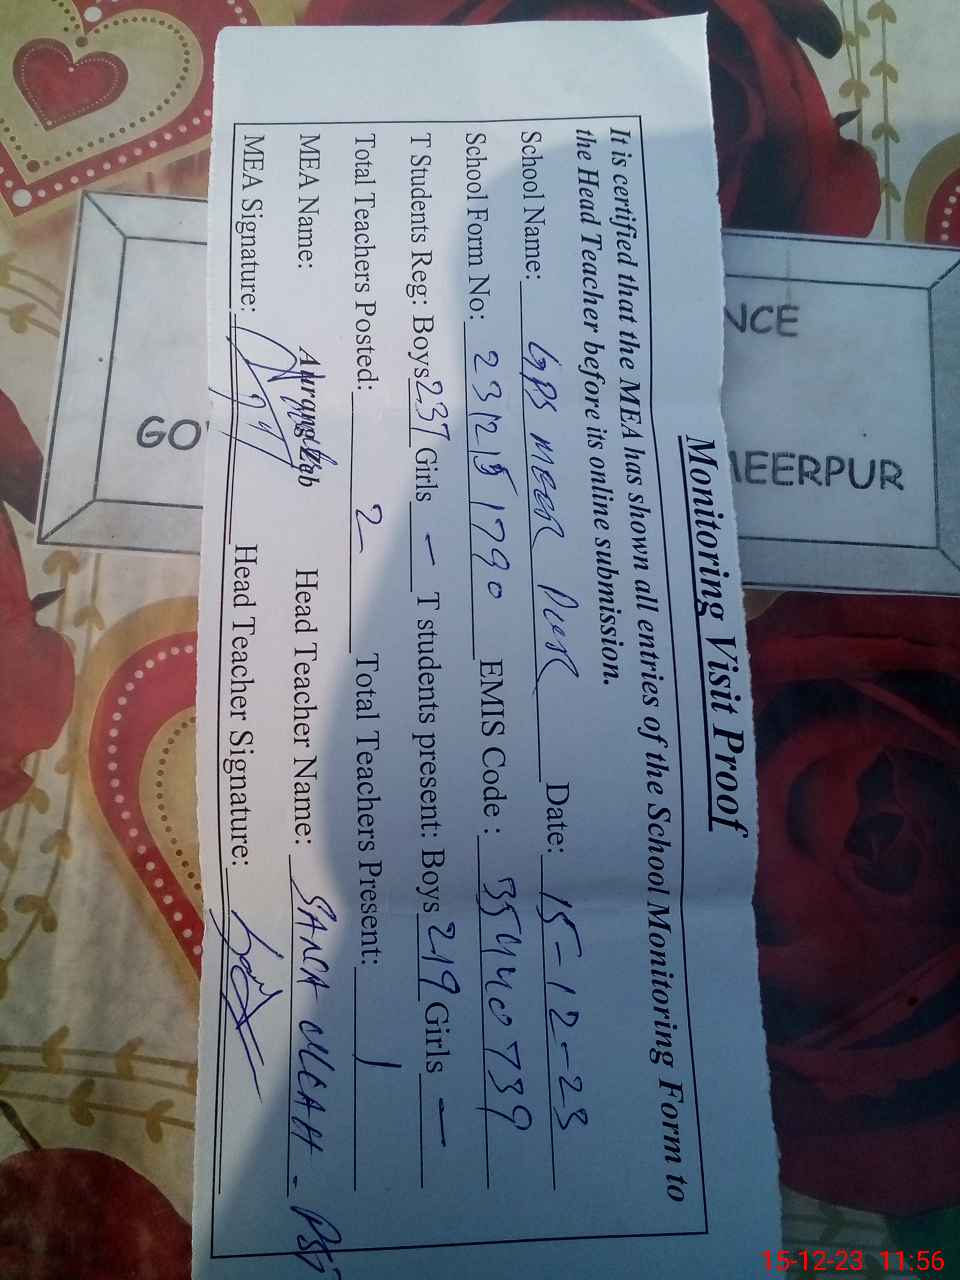 Monitoring Visit Proof
It is certified that the MEA has shown all entries of the School Monitoring Form to
the Head Teacher before its online submission.
School Name: GPS MEER PUR Date: 15-12-23
School Form No: 2312151790 EMIS Code : 35440739
T Students Reg: Boys 237 Girls - T students present: Boys 219 Girls -
Total Teachers Posted: 2 Total Teachers Present: 1
MEA Name: Head Teacher Name: SANA
MEA Signature: Head Teacher Signature:
NCE
GO
MEERPUR
15-12-23 11:56